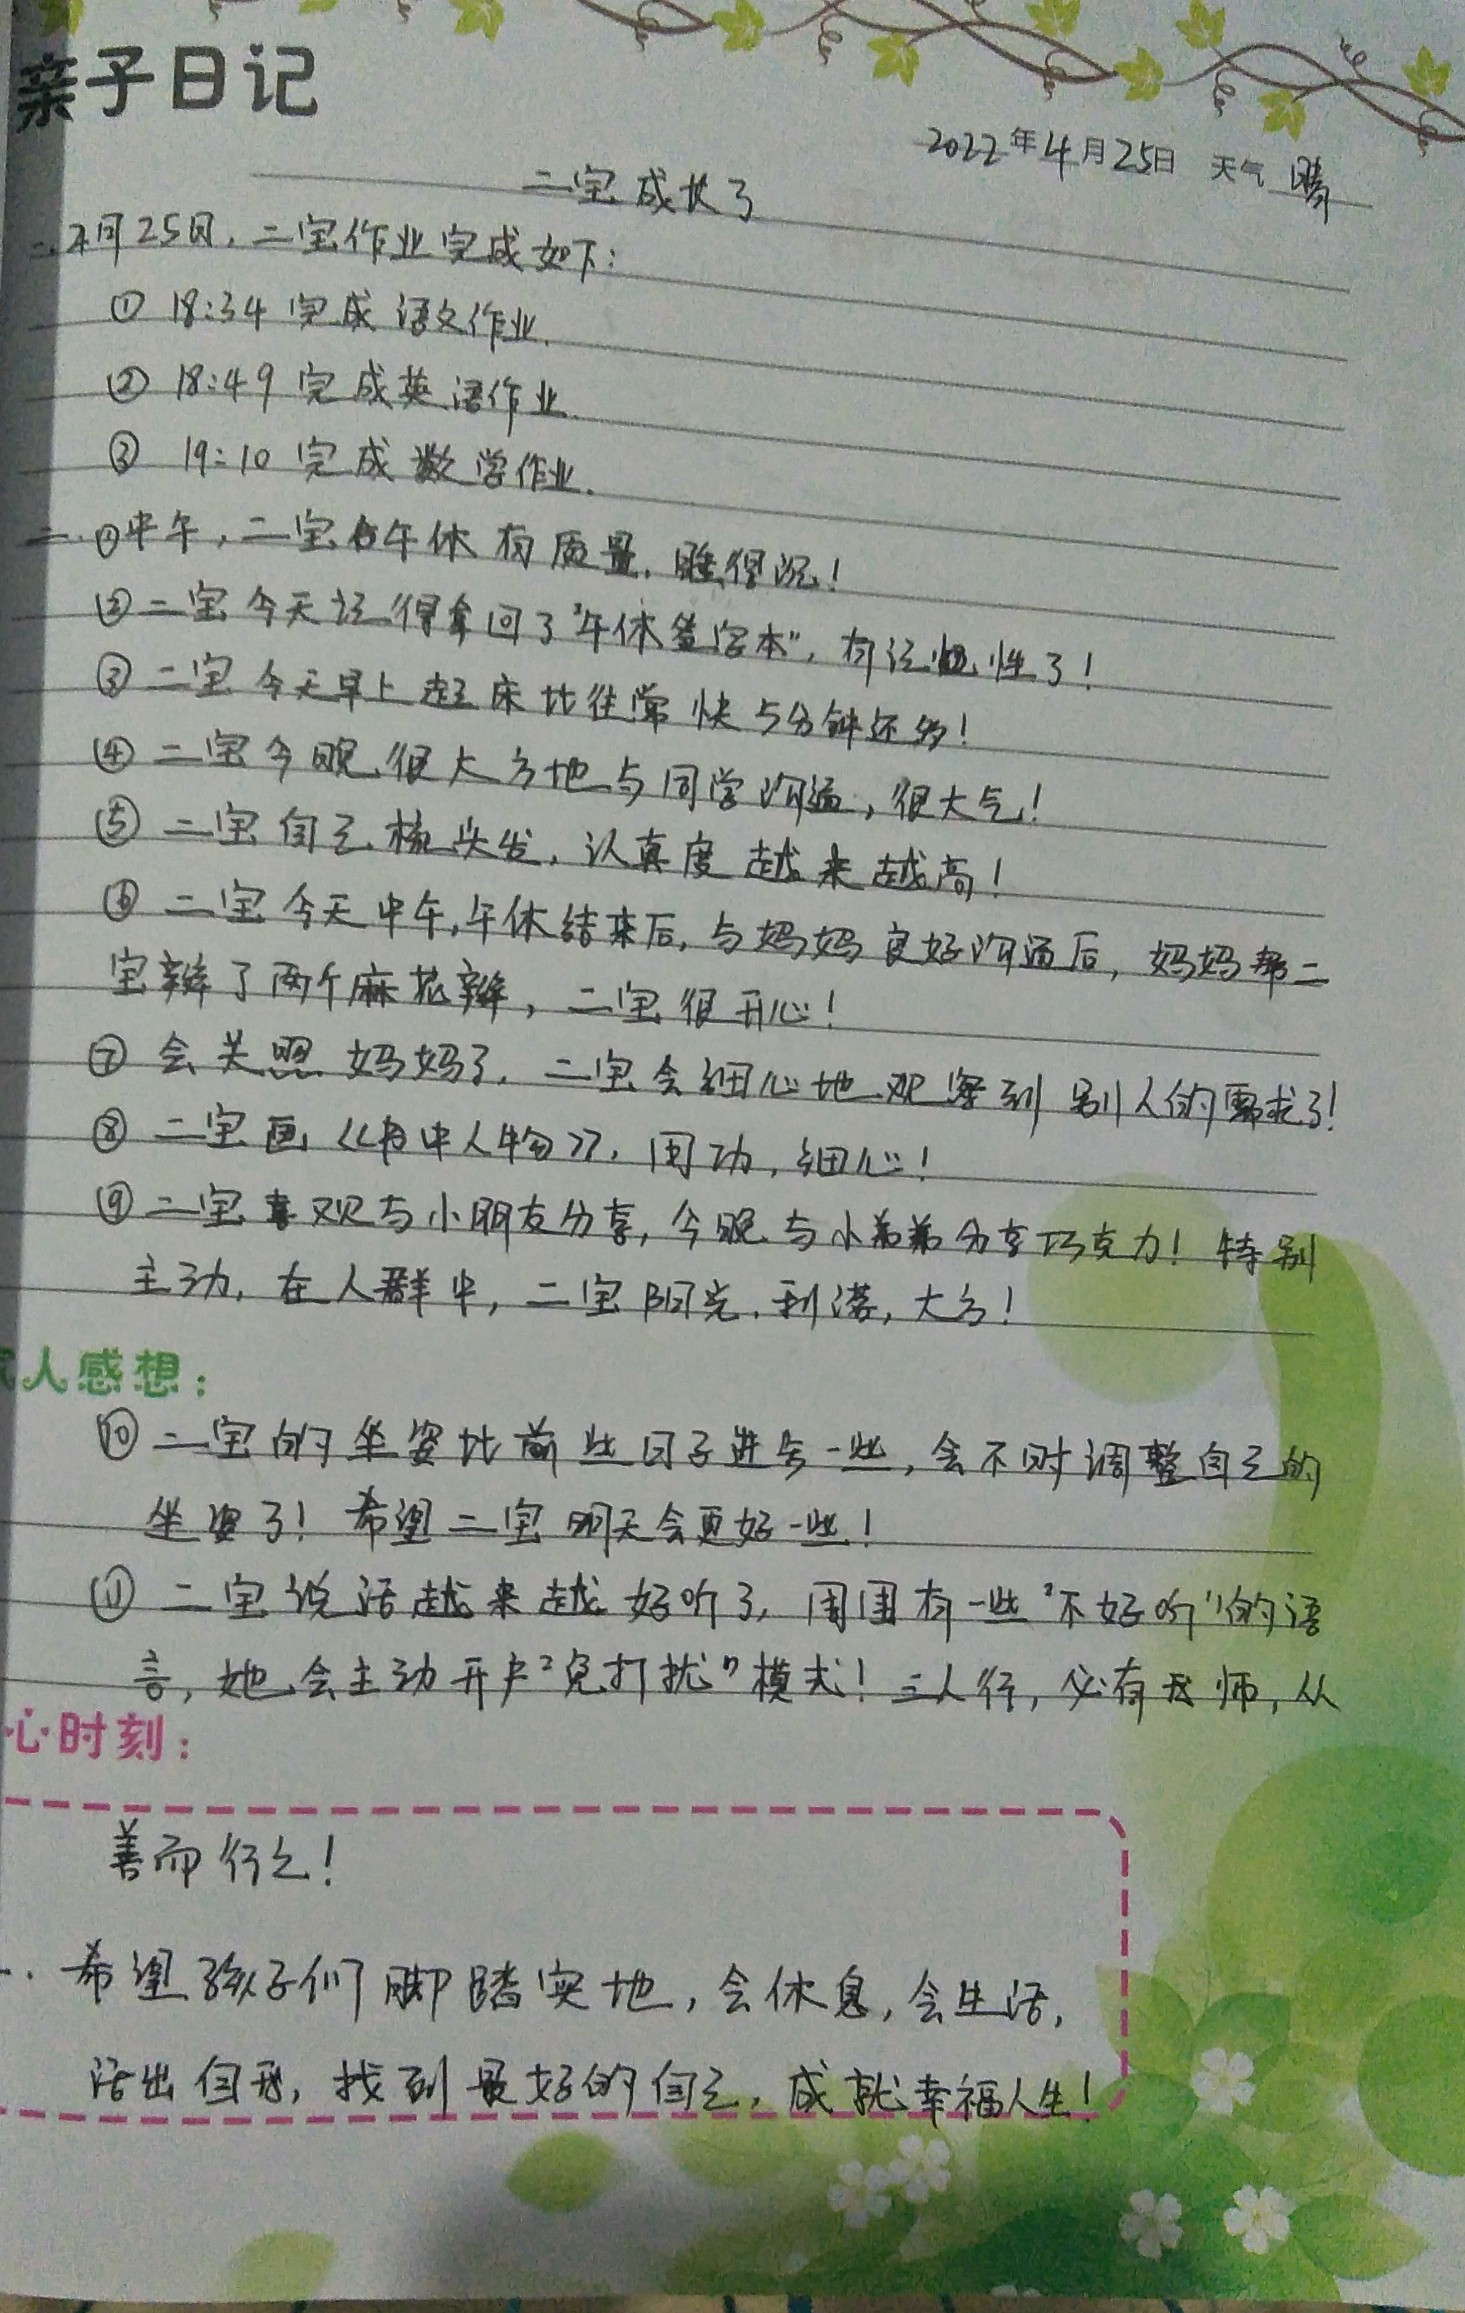 亲子日记
2022年4月25日 天气 晴
二宝成长了
一.4月25日，二宝作业完成如下：
① 18:34 完成语文作业.
② 18:49 完成英语作业.
③ 19:10 完成数学作业.
二.①中午，二宝午休有质量，睡得沉！
②二宝今天记得拿回了"午休签字本"，有记忆性了！
③二宝今天早上起床比往常快5分钟还多！
④二宝今晚很大方地与同学沟通，很大气！
⑤二宝自己梳头发，认真度越来越高！
⑥二宝今天中午，午休结束后，与妈妈良好沟通后，妈妈帮二
宝辫了两个麻花辫，二宝很开心！
⑦会关照妈妈了，二宝会细心地观察到别人的需求了！
⑧二宝画《书中人物》，用功，细心！
⑨二宝喜欢与小朋友分享，今晚与小弟弟分享巧克力！特别
主动，在人群中，二宝阳光.利落，大方！
人感想：
⑩二宝的坐姿比前些日子进步一些，会不时调整自己的
坐姿了！希望二宝明天会更好一些！
⑪二宝说话越来越好听了，周围有一些"不好听"的语
言，她会主动开启"免打扰"模式！三人行，必有我师，从
心时刻：
善而行之！
希望孩子们脚踏实地，会休息，会生活，
活出自我，找到最好的自己，成就幸福人生！